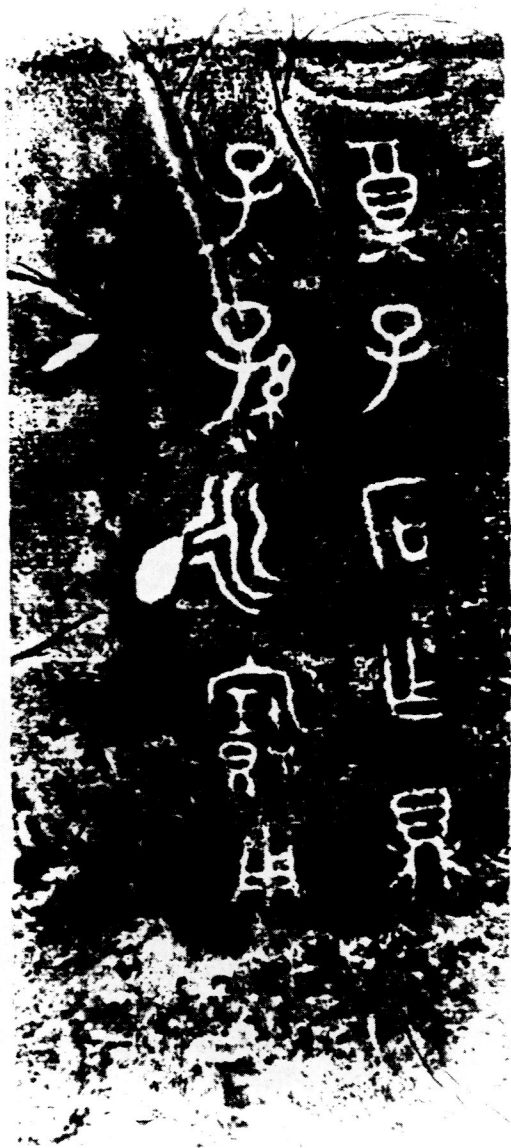 奠子石乍鼎
子=孫=永寶用